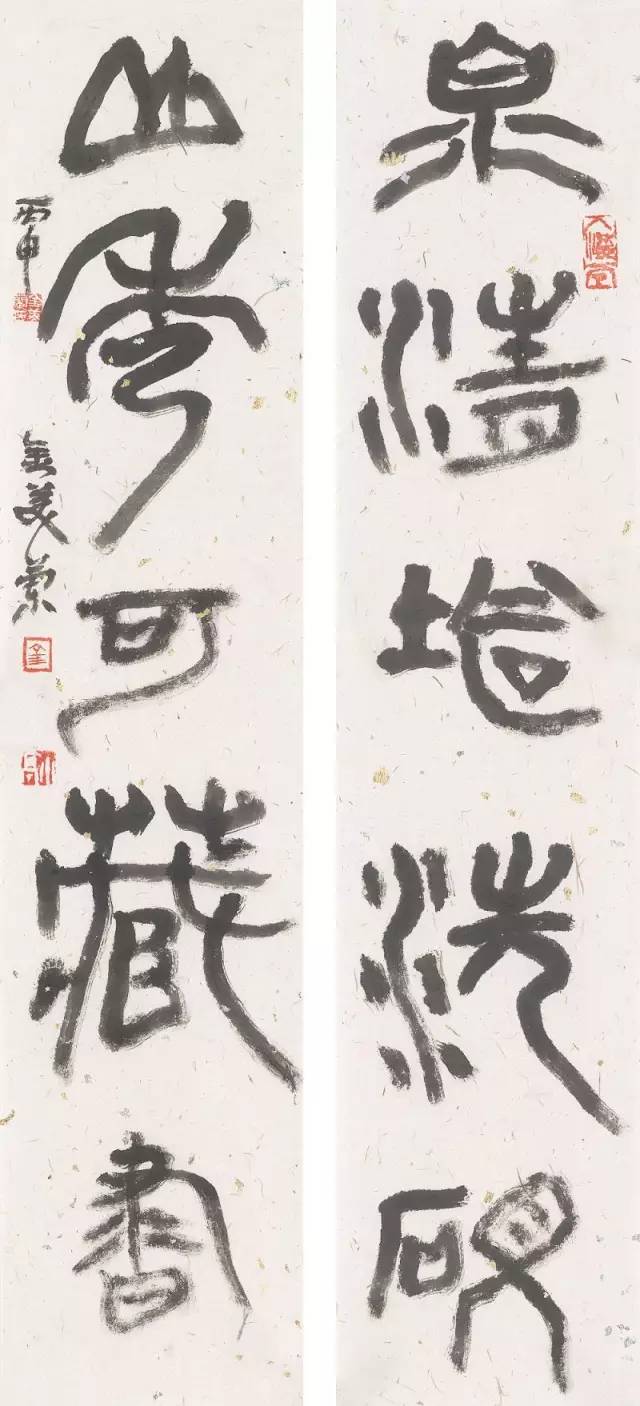 泉清堪洗硯
山秀可藏書
丙申 金美蘭